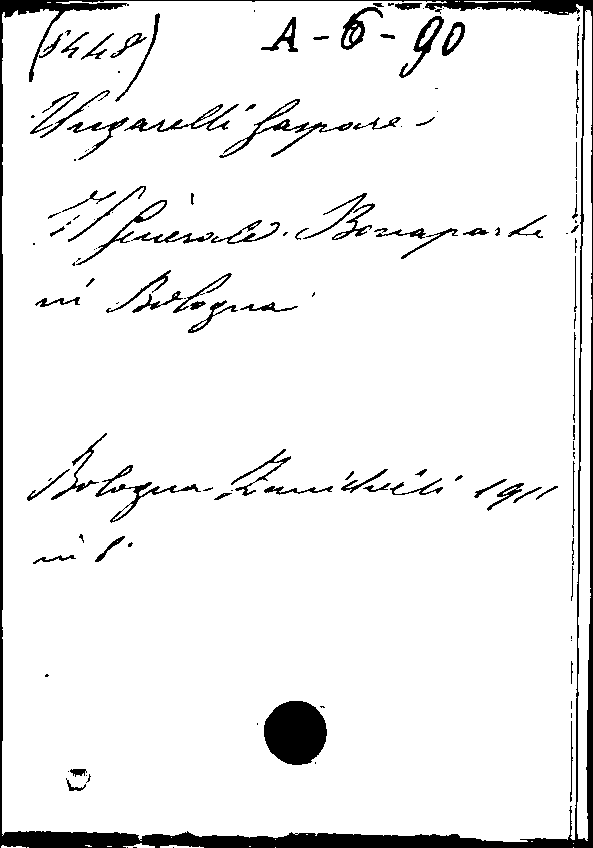 (5448) A-6-90
Ungarelli Gaspare
Il Generale Bonaparte
in Bologna
Bologna Zanichelli 1911
in 8°